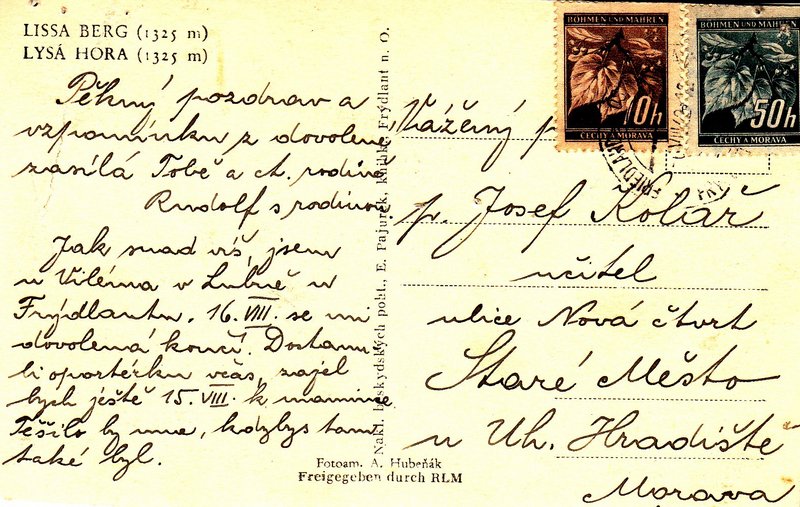 LISSA BERG (1325 m)
LYSÁ HORA (1325 m)
Pěkný pozdrav a
vzpomínku z dovolené
zasílá Tobě a ct. rodině
Rudolf s rodinou.
Jak snad víš, jsem
u Viléma v Lubně u
Frýdlantu. 16. VIII. se mi
dovolená končí. Dostanu
li oportérku včas, zajel
bych ještě 15. VIII. k mamince
Těšilo by mne, kdybys tam
také byl.
Nakl. beskydských pohl., E. Pajurek, knihk. Frýdlant n. O.
Fotoam. A. Hubeňák
Freigegeben durch RLM
BÖHMEN UND MÄHREN
10h
ČECHY A MORAVA
BÖHMEN UND MÄHREN
50h
ČECHY A MORAVA
FRIEDLAND
Vážený
p. Josef Kolář
učitel
ulice Nová čtvrt
Staré Město
u Uh. Hradiště
Morava